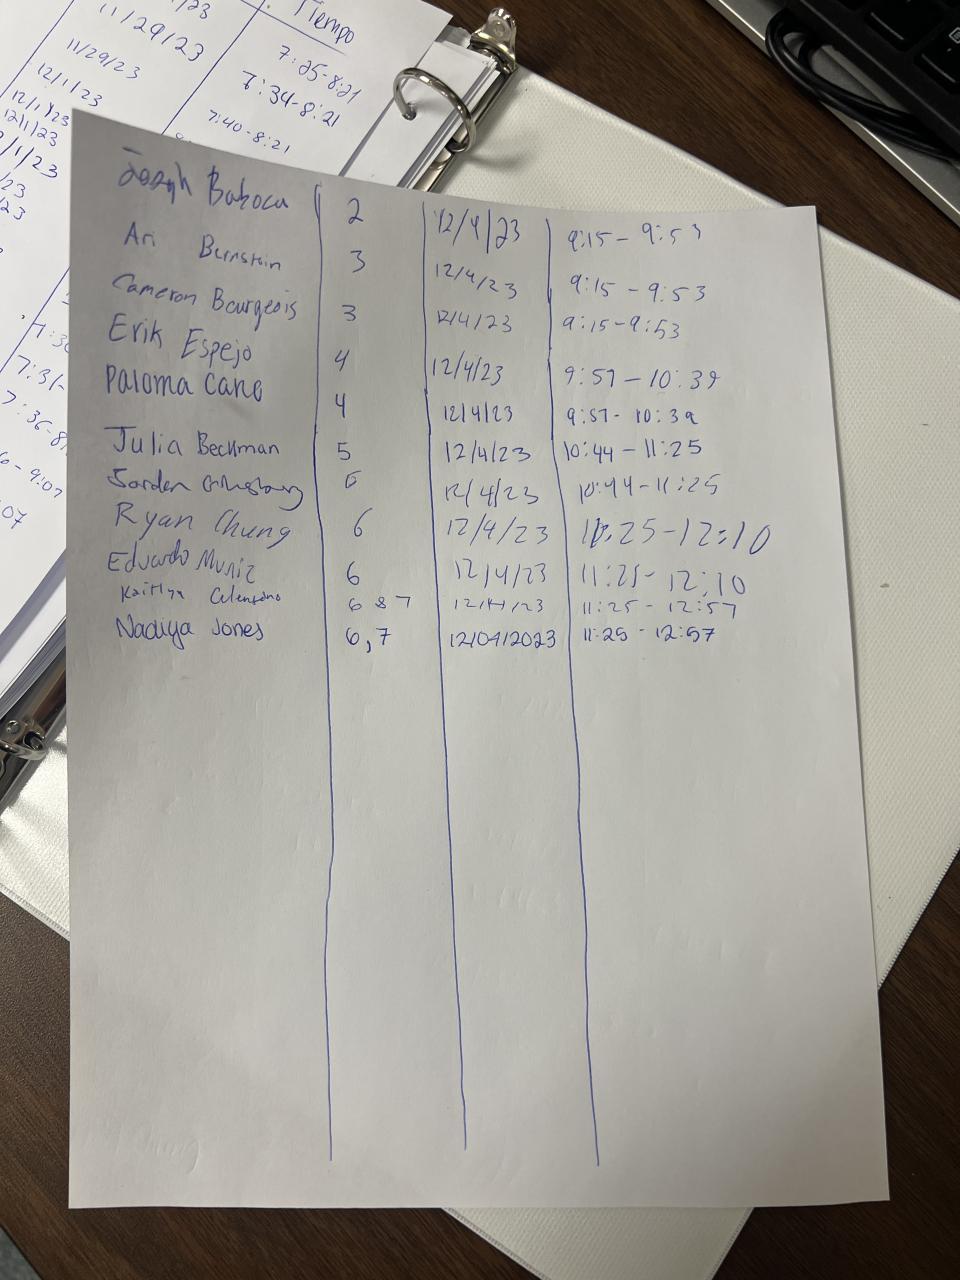 11/29/23
11/29/23
12/1/23
12/1/23
12/1/23
Tiempo
7:25-8:21
7:34-8:21
7:40-8:21
7:31-
7:36-8
- 9:07
07
Joseph 2 12/4/23 9:15 - 9:53
Ari Bernstein 3 12/4/23 9:15 - 9:53
Cameron Bourgeois 3 12/4/23 9:15-9:53
Erik Espejo 4 12/4/23 9:57 - 10:39
Paloma Cano 4 12/4/23 9:57- 10:39
Julia Beckman 5 12/4/23 10:44 - 11:25
Jorden 5 12/4/23 10:44 - 11:25
Ryan Chung 6 12/4/23 11:25-12:10
Eduardo Muniz 6 12/4/23 11:25- 12:10
Kaitlyn 6 & 7 12/4/23 11:25 - 12:57
Nadiya Jones 6,7 12/04/2023 11:25 - 12:57